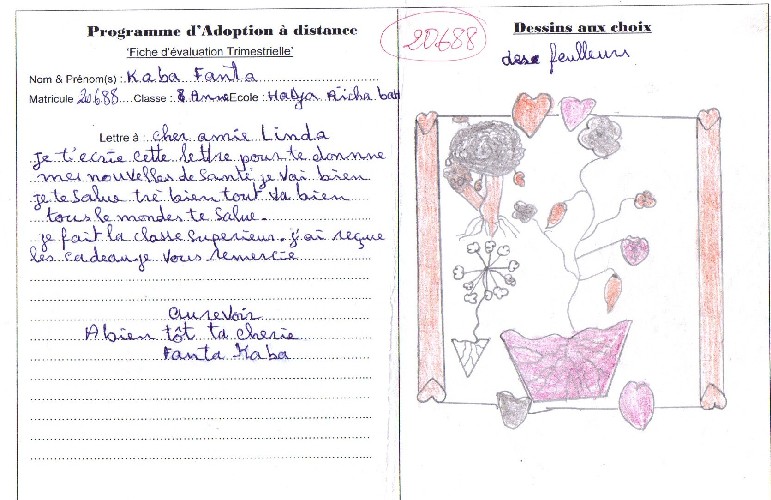 Programme d'Adoption à distance
'Fiche d'évaluation Trimestrielle'
Nom & Prénom(s) : Kaba Fanta
Matricule 20688 Classe : 8 Anne Ecole : Hadja Aicha bah
Lettre à : cher amie Linda
Je t'ecrie cette lettre pour te donnne
mes nouvelles de Santé je vai bien
je te Salue trè bien tout va bien
tous le mondes te Salue.
je fait la classe Superieur. j'ai reçue
les cadeau je vous remercie
aurevoir
A bien tôt ta cherie
Fanta Kaba
20688
Dessins aux choix
des feulleurs